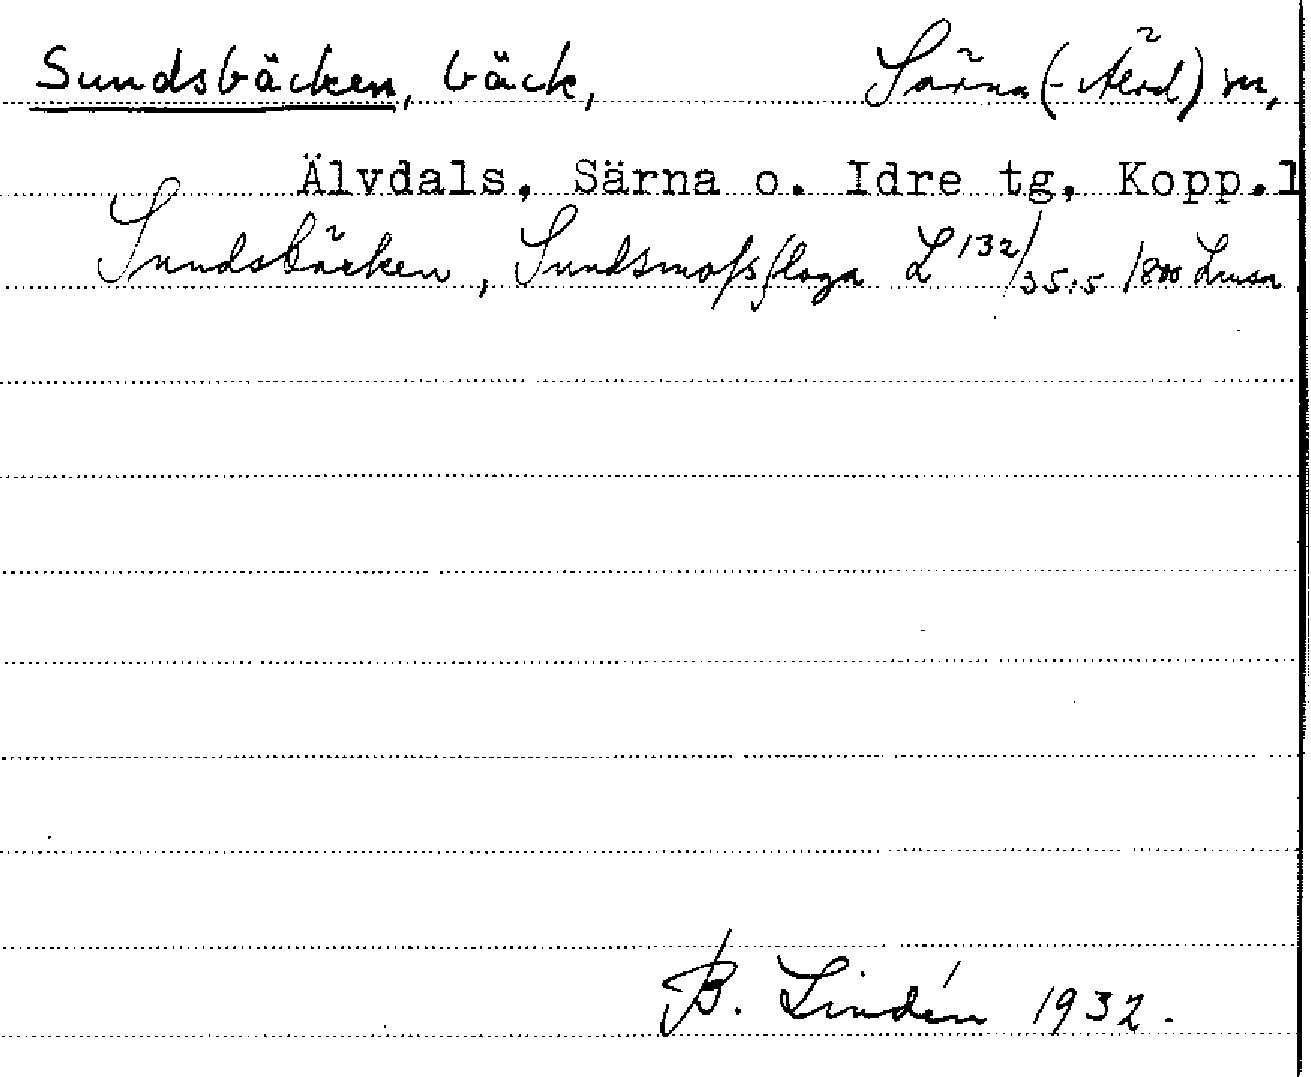 Sundsbäcken, bäck, Särna (-Älvd) sn,
Älvdals, Särna o. Idre tg, Kopp.l
Sundsbäcken, Sundsmossfloga L 132/35:5 1800 Lmsa
B. Lindén 1932.